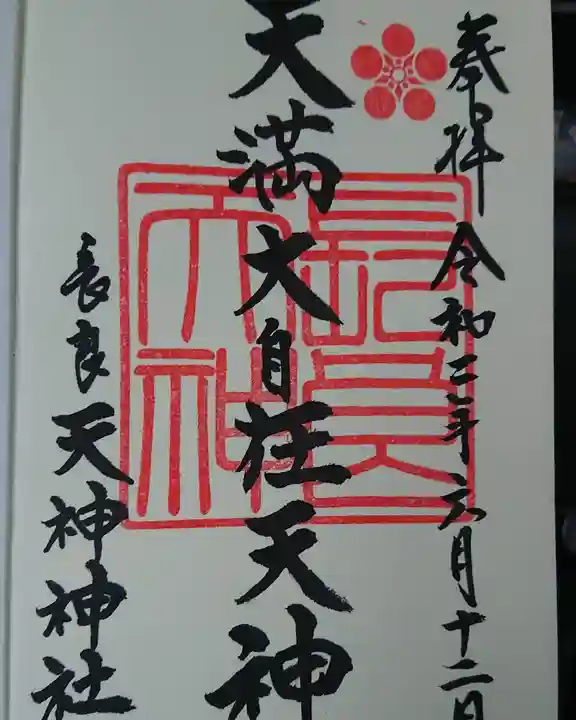 奉拝 令和二年六月十二日
天満大自在天神
長良天神神社
長良天神